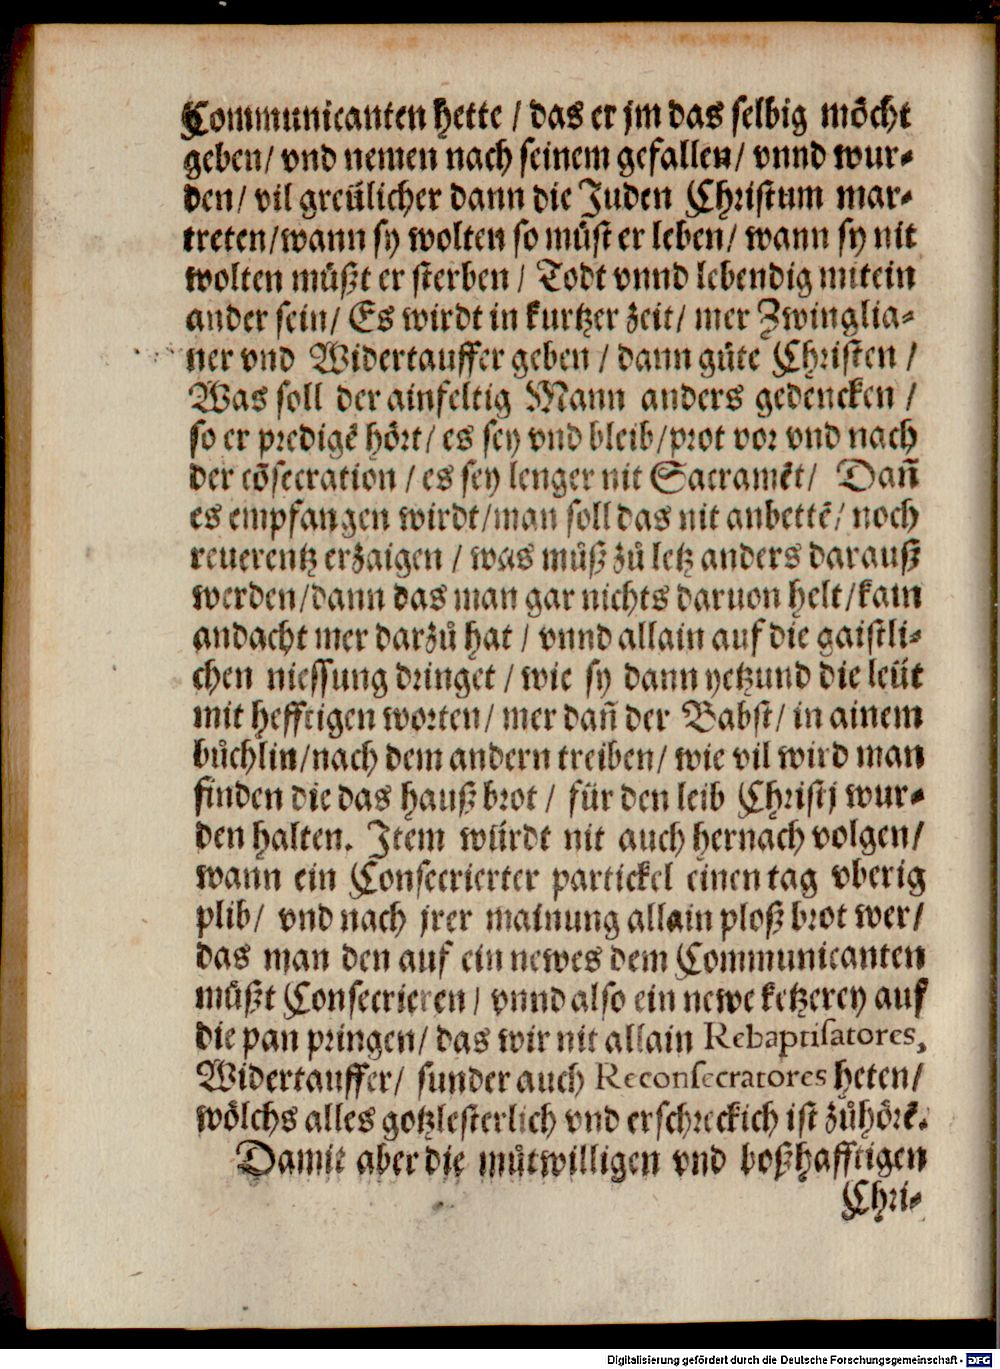 Communicanten hette / das er jm das selbig möcht
geben / vnd nemen nach seinem gefallen / vnnd wur-
den / vil greülicher dann die Juden Christum mar-
treten / wann sy wolten so müst er leben / wann sy nit
wolten müßt er sterben / Todt vnnd lebendig mitein
ander sein / Es wirdt in kurtzer zeit / mer Zwinglia-
ner vnd Widertauffer geben / dann gůte Christen /
Was soll der ainfeltig Mann anders gedencken /
so er predigē hört / es sey vnd bleib / prot vor vnd nach
der cōsecration / es sey lenger nit Sacramēt / Dañ
es empfangen wirdt / man soll das nit anbettē / noch
reuerentz erzaigen / was můß zů letz anders darauß
werden / dann das man gar nichts daruon helt / kain
andacht mer darzů hat / vnnd allain auf die gaistli-
chen niessung dringet / wie sy dann yetzund die leüt
mit hefftigen worten / mer dañ der Babst / in ainem
bůchlin / nach dem andern treiben / wie vil wird man
finden die das hauß brot / für den leib Christj wur-
den halten. Item würdt nit auch hernach volgen /
wann ein Consecrierter partickel einen tag vberig
plib / vnd nach jrer mainung allain ploß brot wer /
das man den auf ein newes dem Communicanten
müßt Consecrieren / vnnd also ein newe ketzerey auf
die pan pringen / das wir nit allain Rebaptisatores,
Widertauffer / sunder auch Reconsecratores heten /
wölchs alles gotzlesterlich vnd erschreckich ist zůhörē.
Damit aber die můtwilligen vnd boßhafftigen
Chri-
Digitalisierung gefördert durch die Deutsche Forschungsgemeinschaft - DFG